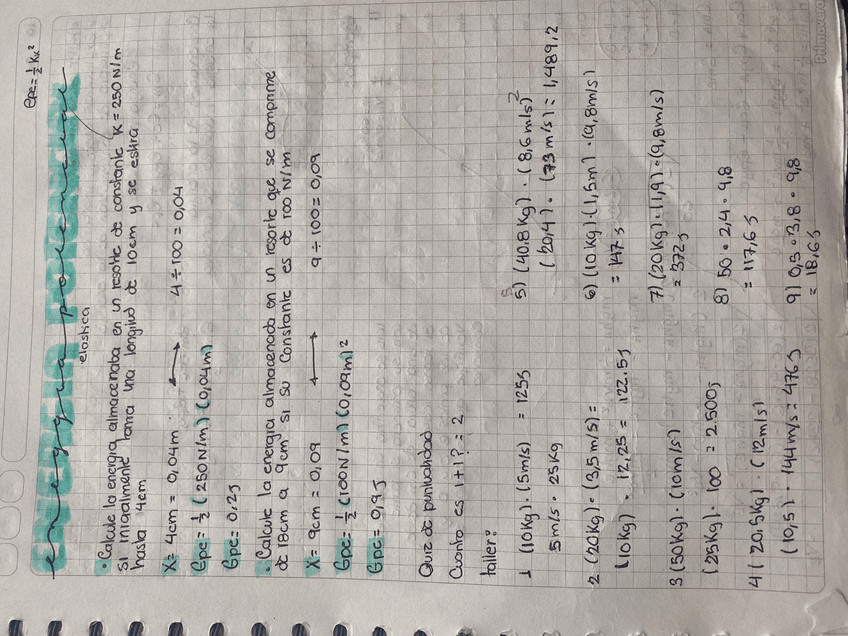 energía potencial
epe = ½ Kx²
elastica
• Calcule la energia almacenaba en un resorte de constante K = 250 N/m
si inicialmente tenia una longitud de 10cm y se estira
hasta 4cm
X = 4cm = 0,04m ⟷ 4 ÷ 100 = 0,04
Epe = ½ (250 N/m) (0,04m)
Epe = 0,2J
• Calcule la energia almacenada en un resorte que se comprime
de 18cm a 9cm si su Constante es de 100 N/m
X = 9cm = 0,09 ⟷ 9 ÷ 100 = 0,09
Epe = ½ (100 N/m) (0,09m)²
Epe = 0,9J
Quiz de puntualidad
Cuanto es 1+1? = 2
taller:
1 (10Kg) · (5m/s) = 125J
5m/s · 25Kg
2 (20Kg) · (3,5m/s) =
(10Kg) · 12,25 = 122.5J
3 (50Kg) · (10m/s)
(25Kg) · 100 = 2500J
4 (20,5Kg) · (12m/s)
(10,5) · 144m/s = 476J
5) (40.8Kg) · (8,6m/s)²
(20,4) · (73m/s) = 1,489,2
6) (10Kg) · (1,5m) · (9,8m/s)
= 147J
7) (20Kg) · (1,9) · (9,8m/s)
= 372J
8) 50 · 2,4 · 9,8
= 117,6J
9) 0,5 · 3,8 · 9,8
= 18,6J